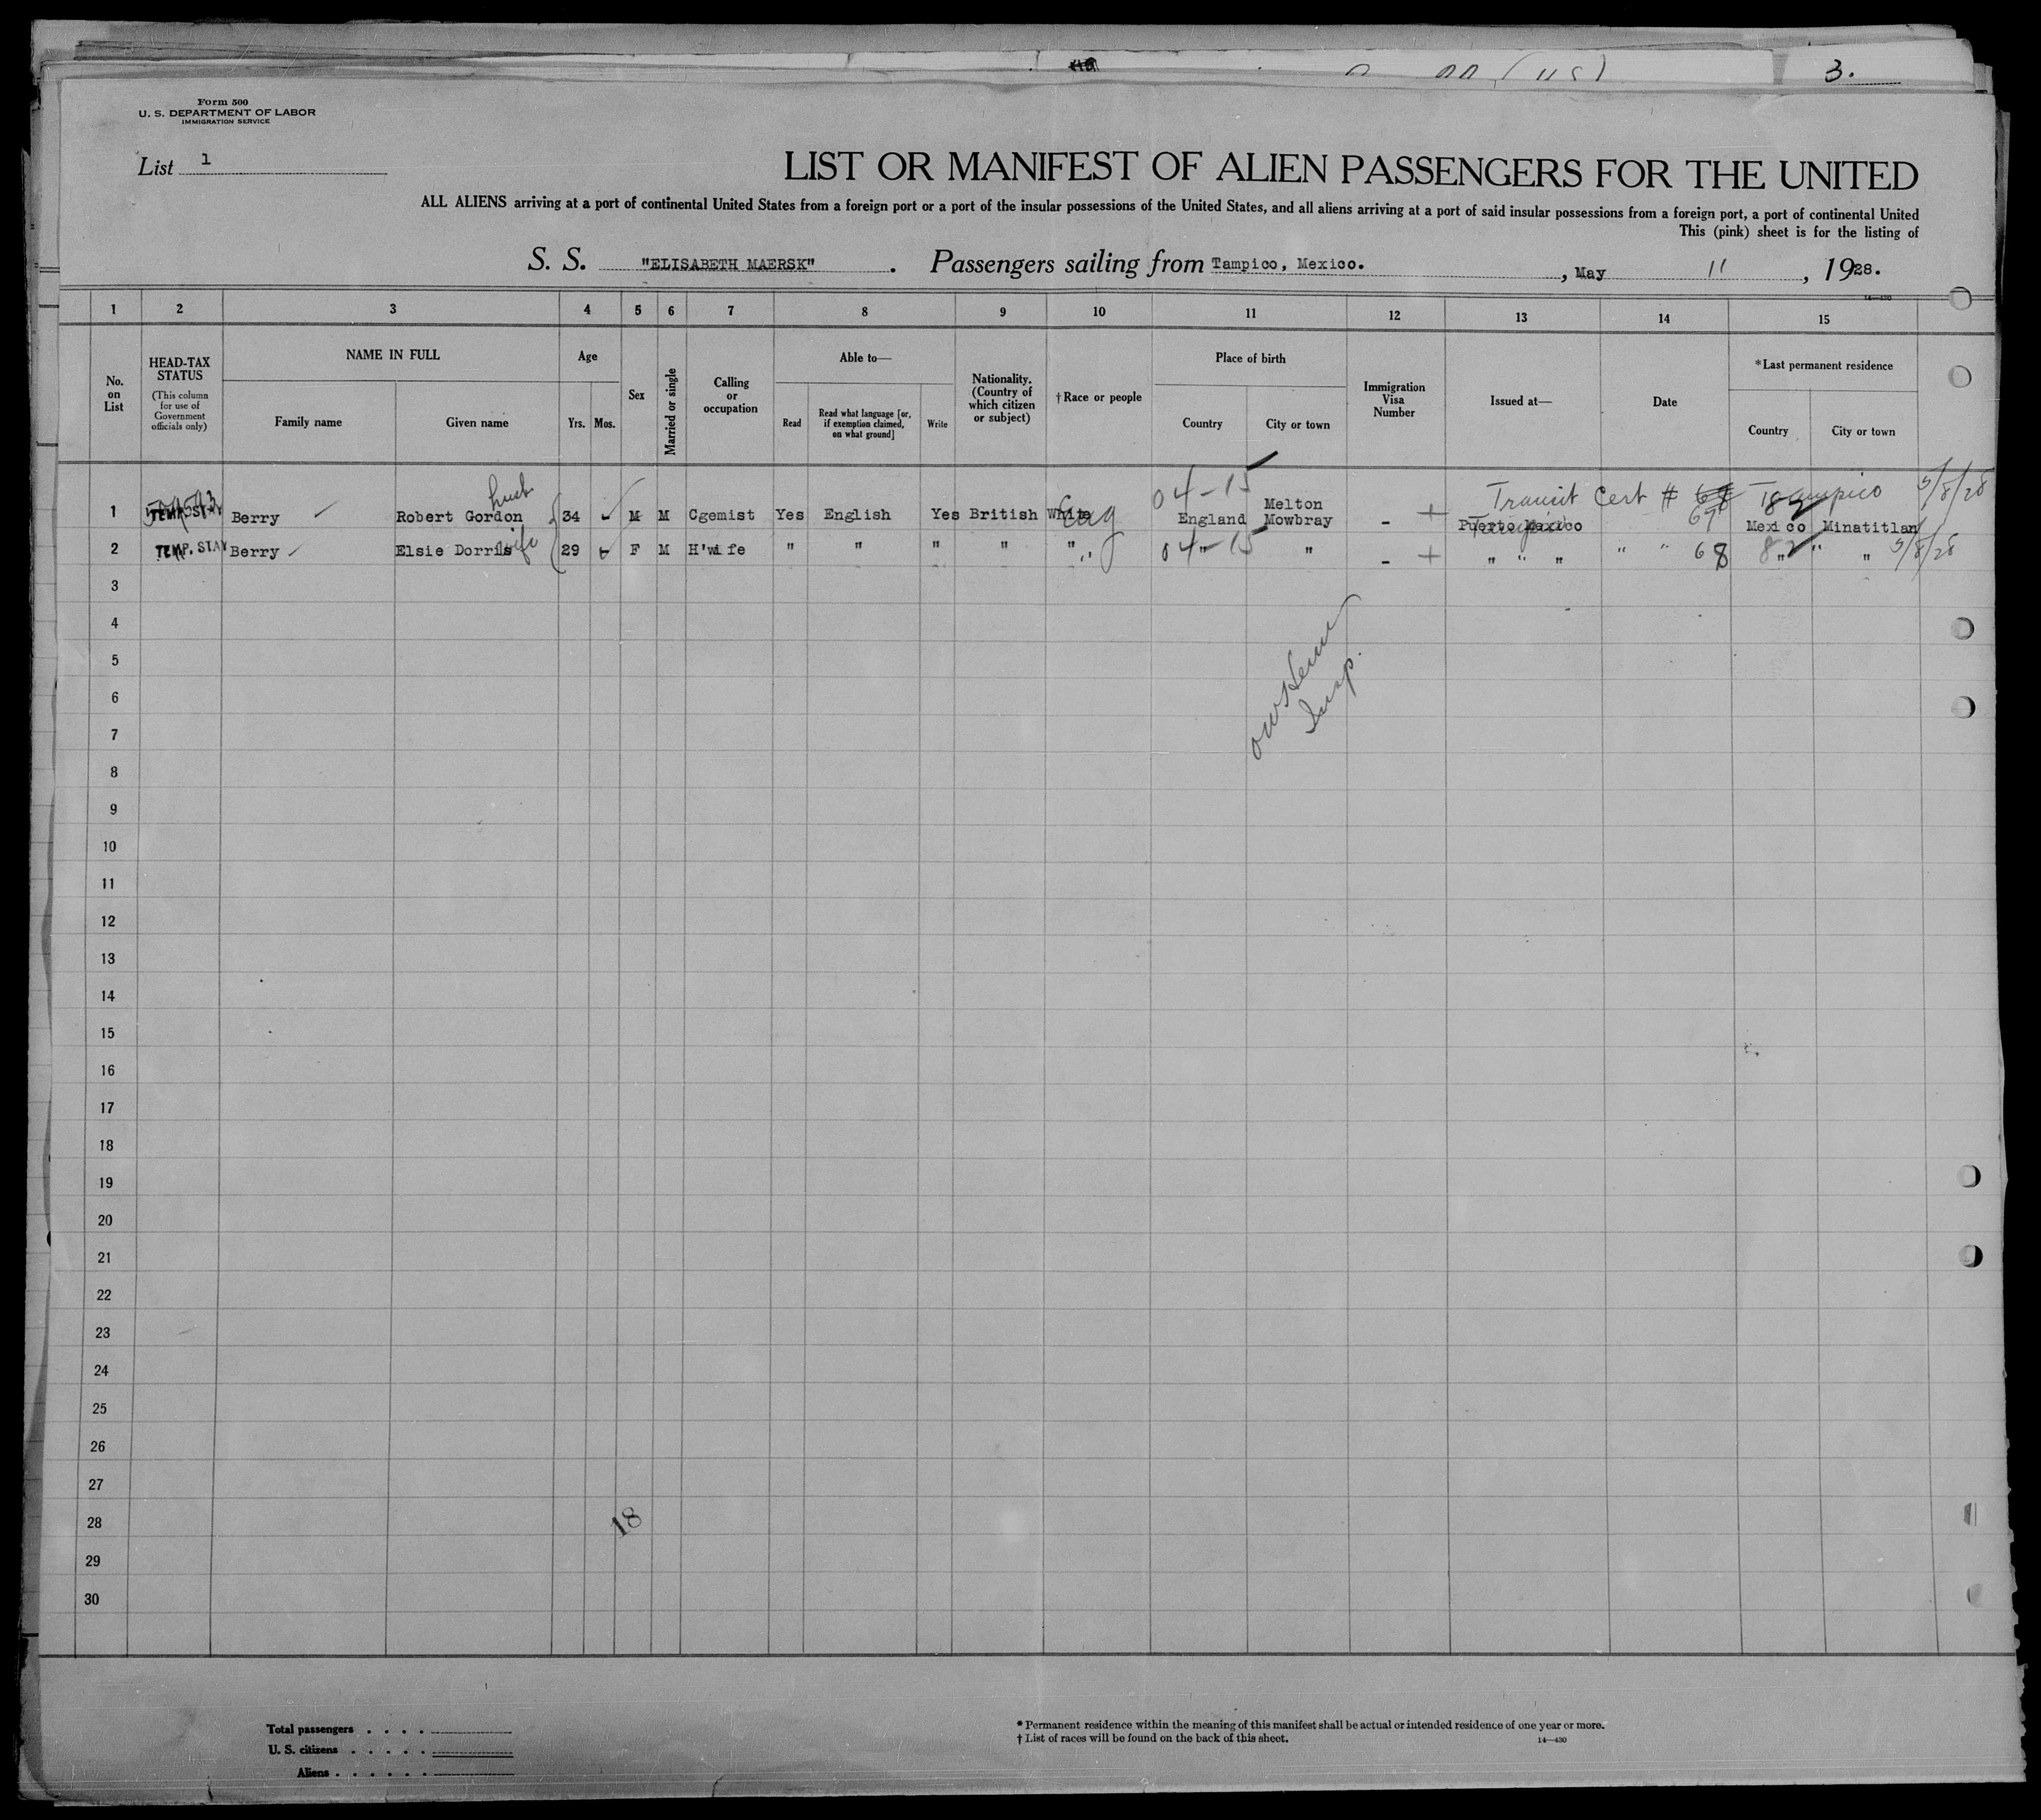 3.
Form 500
U. S. DEPARTMENT OF LABOR
IMMIGRATION SERVICE
List 1
LIST OR MANIFEST OF ALIEN PASSENGERS FOR THE UNITED
ALL ALIENS arriving at a port of continental United States from a foreign port or a port of the insular possessions of the United States, and all aliens arriving at a port of said insular possessions from a foreign port, a port of continental United
This (pink) sheet is for the listing of
S. S. "ELISABETH MAERSK" . Passengers sailing from Tampico, Mexico. , May 11 , 1928.
14—430
1 2 3 4 5 6 7 8 9 10 11 12 13 14 15
No. on List
HEAD-TAX STATUS
(This column for use of Government officials only)
NAME IN FULL
Family name Given name
Age
Yrs. Mos.
Sex
Married or single
Calling or occupation
Able to—
Read
Read what language [or, if exemption claimed, on what ground]
Write
Nationality. (Country of which citizen or subject)
†Race or people
Place of birth
Country City or town
Immigration Visa Number
Issued at—
Date
*Last permanent residence
Country City or town
husb 04-15 Transit Cert # 67 Tampico 5/8/28
1 TEMP. STAY Berry Robert Gordon 34 - M M Cgemist Yes English Yes British White Eng England Melton Mowbray - + Puerto Mexico Tampico 182 Mexico Minatitlan
2 TEMP. STAY Berry Elsie Dorris wife 29 - F M H'wife " " " " " 04-15 " " - + " " " " " 68 82 " " " 5/8/28
3
4
5
6
Insp.
7
8
9
10
11
12
13
14
15
16
17
18
19
20
21
22
23
24
25
26
27
28
18
29
30
Total passengers . . . .
U. S. citizens . . . . .
Aliens . . . . . .
* Permanent residence within the meaning of this manifest shall be actual or intended residence of one year or more.
† List of races will be found on the back of this sheet.
14—430